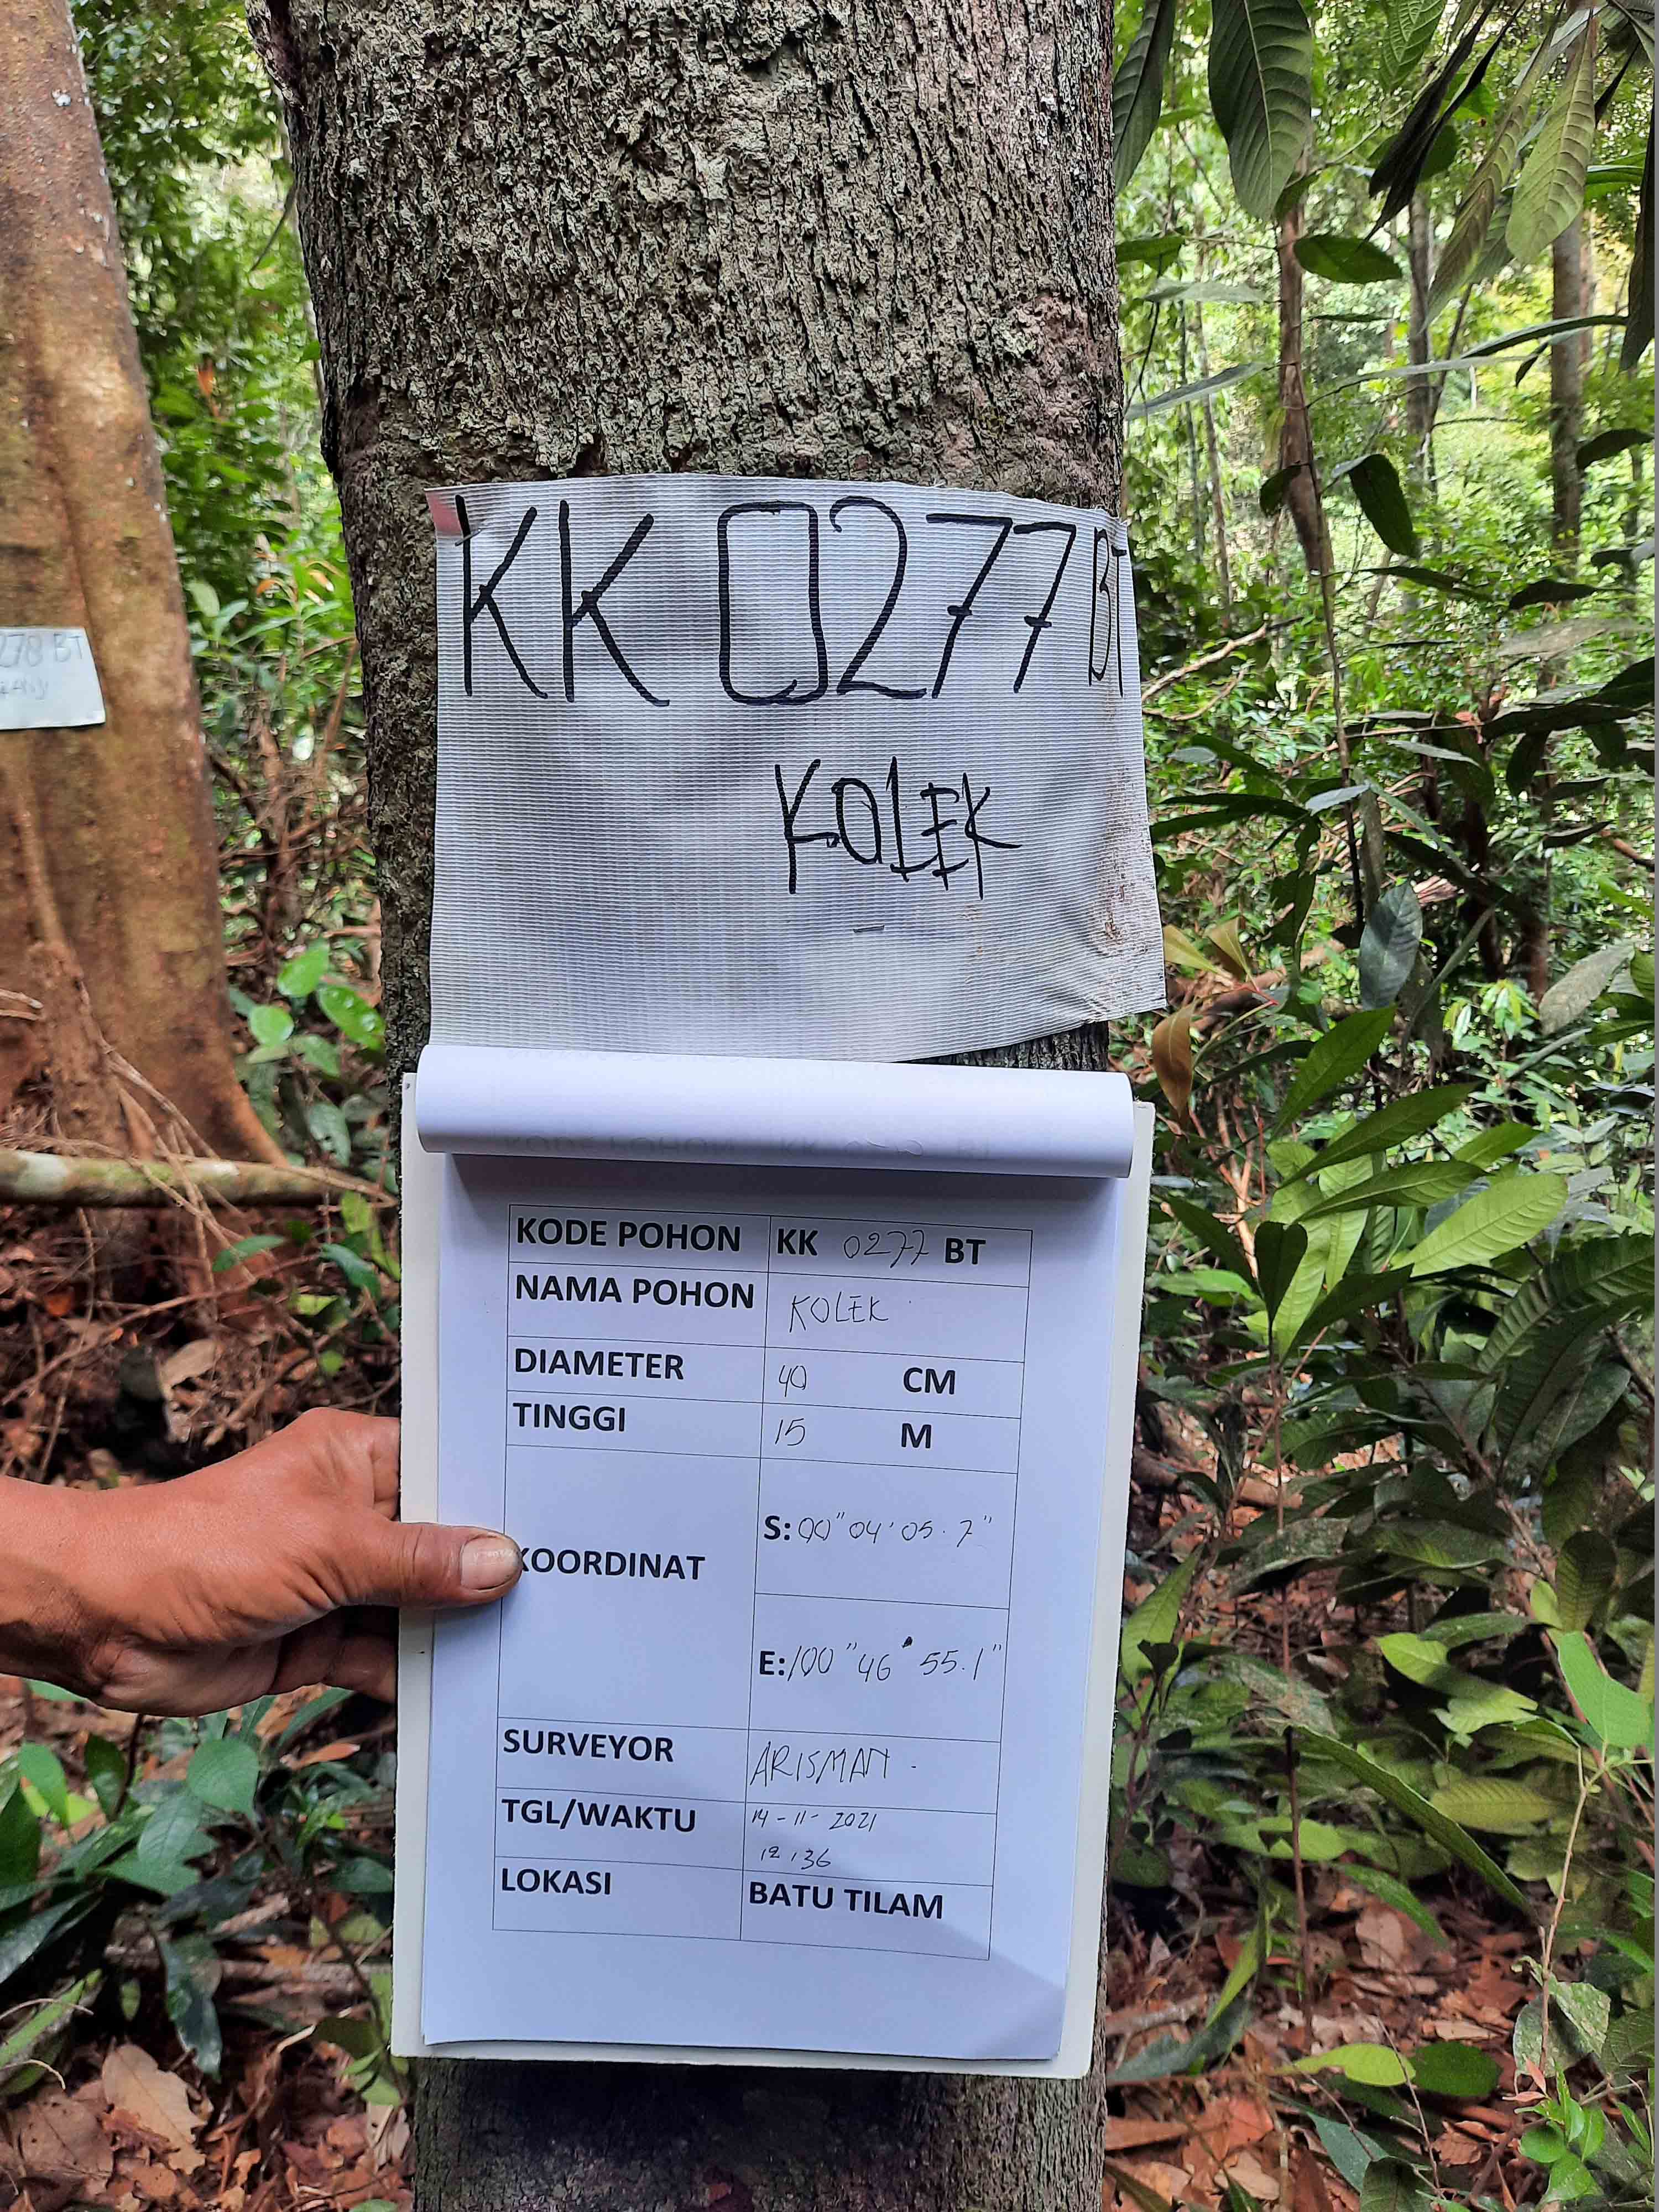 KK 0277 BT
KOLEK
278 BT
KODE POHON KK 0277 BT
NAMA POHON KOLEK
DIAMETER 40 CM
TINGGI 15 M
KOORDINAT
S: 00" 04' 05.7"
E: 100" 46' 55.1"
SURVEYOR ARISMAN.
TGL/WAKTU 14-11-2021
12,36
LOKASI BATU TILAM